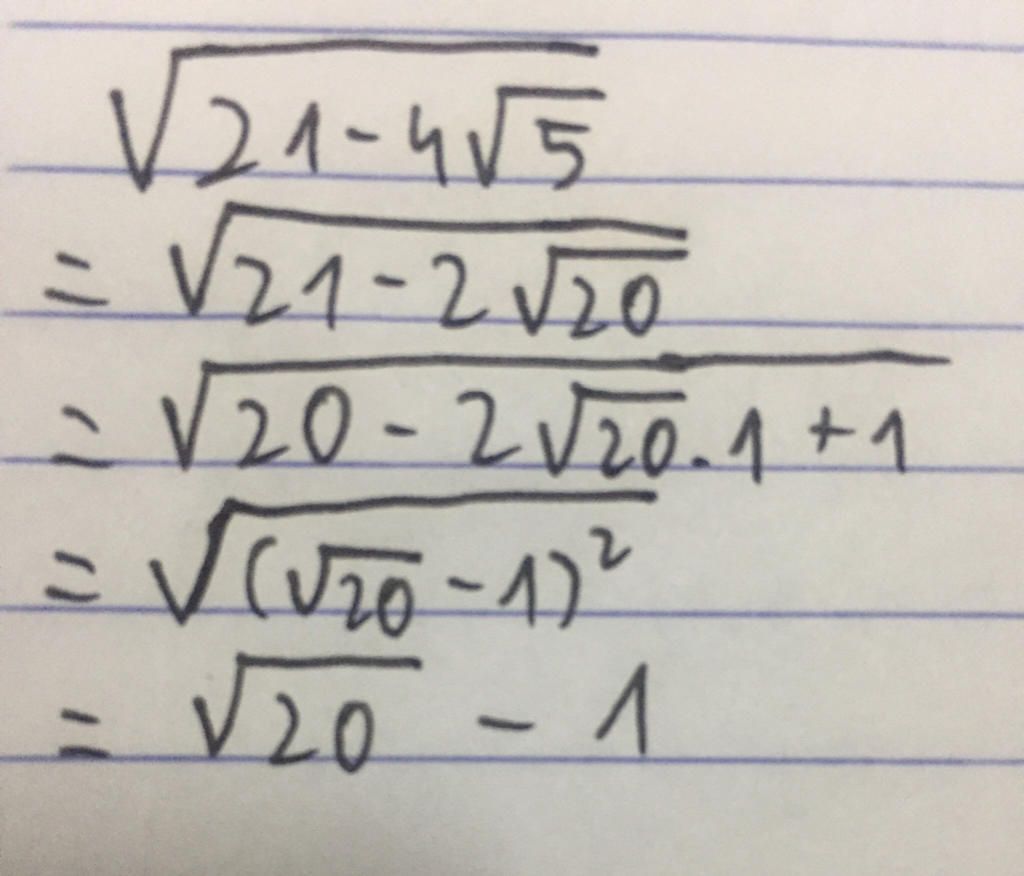 √(21 - 4√5)
= √(21 - 2√20)
= √(20 - 2√20 . 1 + 1)
= √((√20 - 1)²)
= √20 - 1